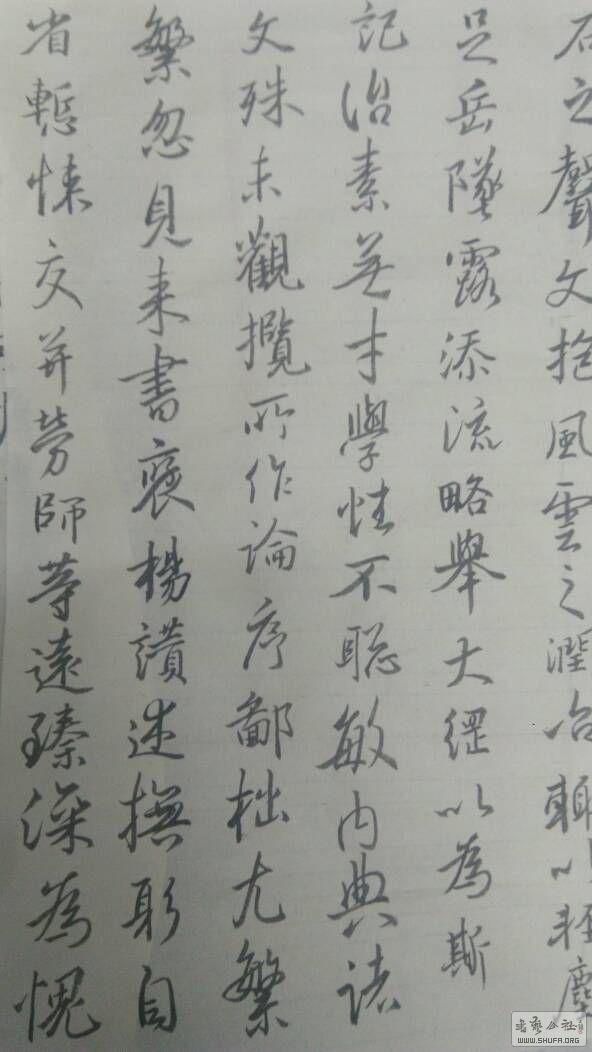 石之聲文抱風雲之潤冶輒以輕塵
足岳墜露添流略舉大綱以為斯
記治素無才學性不聰敏內典諸
文殊未觀攬所作論序鄙拙尤繁
繁忽見來書褒楊讚述撫躬自
省慙悚交并勞師等遠臻深為愧
書藝公社
WWW.SHUFA.ORG